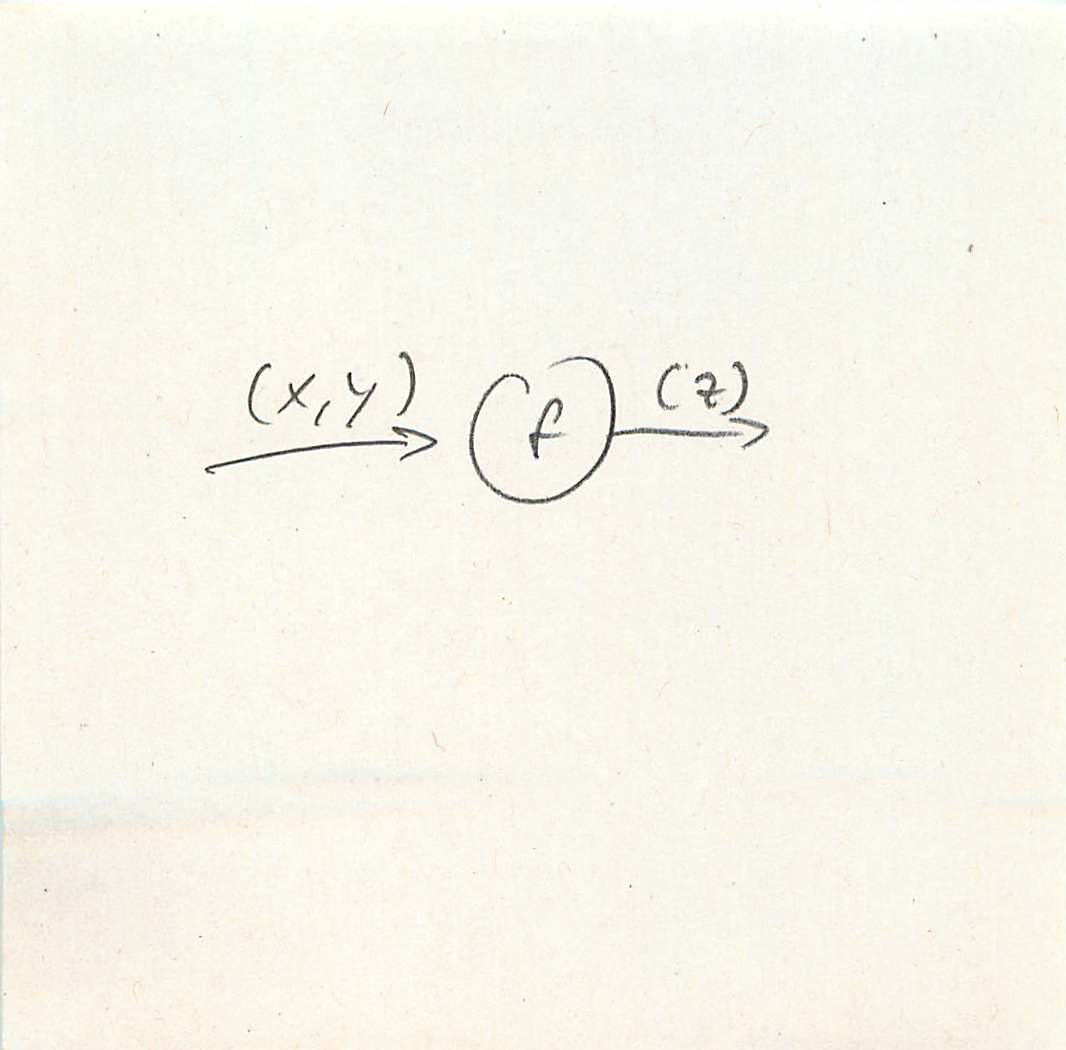 (x,y) f (z)